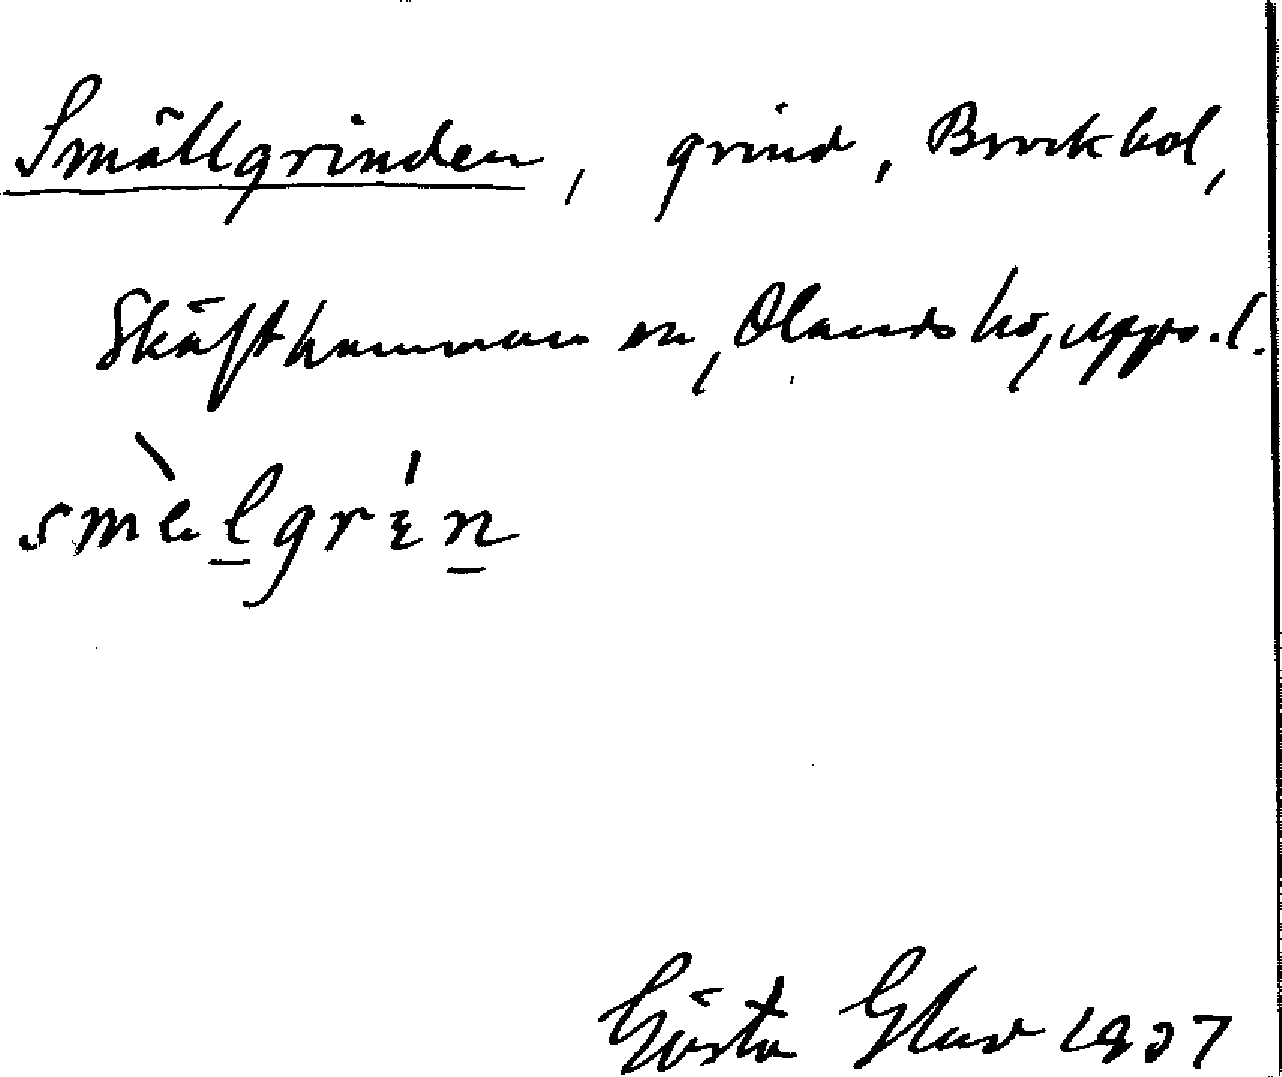 Smällgrinden, grind, Brockbol,
Skäfthammars sn, Olands hd, Upps. l.
smèlgrín
Gösta 1937